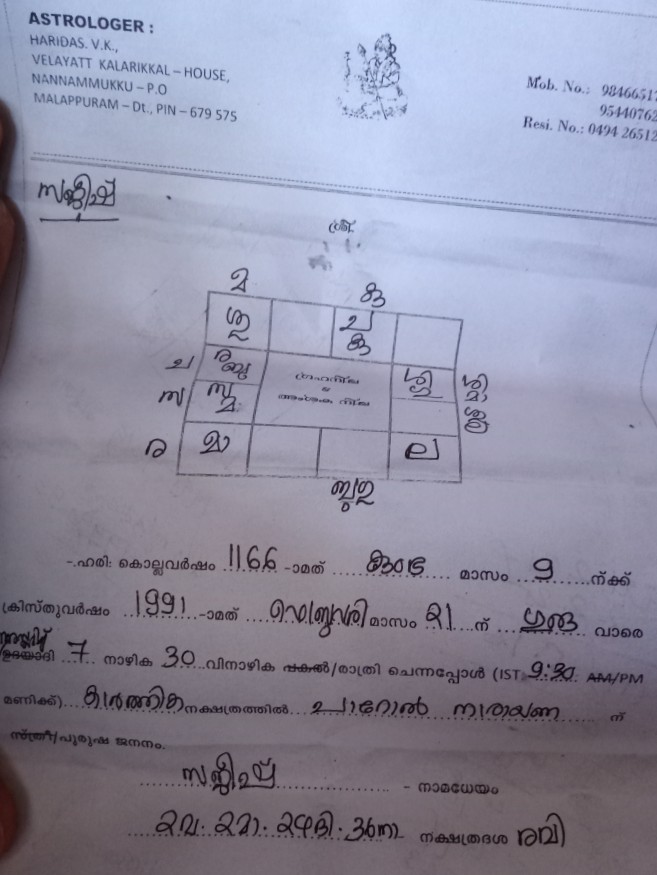 ASTROLOGER :
HARIDAS. V.K.,
VELAYATT KALARIKKAL – HOUSE,
NANNAMMUKKU – P.O
MALAPPURAM – Dt., PIN – 679 575
Mob. No.: 9846651
9544076
Resi. No.: 0494 2651
സജീഷ്
ശ്രീ:
മ
കു
ശു
ച
കു
ച
ര
ബു
ഗ്രഹനില
അംശക നില
സ
മ
ര
മാ
ല
ഹരി: കൊല്ലവർഷം 1166 -ാമത് കുംഭ മാസം 9 ന്ക്ക്
ക്രിസ്തുവർഷം 1991 -ാമത് ഫെബ്രുവരി മാസം 21 ന് ഗുരു വാരെ
ഉദയാദി 7 നാഴിക 30 വിനാഴിക പകൽ/രാത്രി ചെന്നപ്പോൾ (IST 9:30 AM/PM
മണിക്ക്) കാർത്തിക നക്ഷത്രത്തിൽ നാരായണ ന്
സ്ത്രീ/പുരുഷ ജനനം.
സജീഷ് - നാമധേയം
2വ. 2മാ. 29ദി. 36നാ നക്ഷത്രദശ രവി